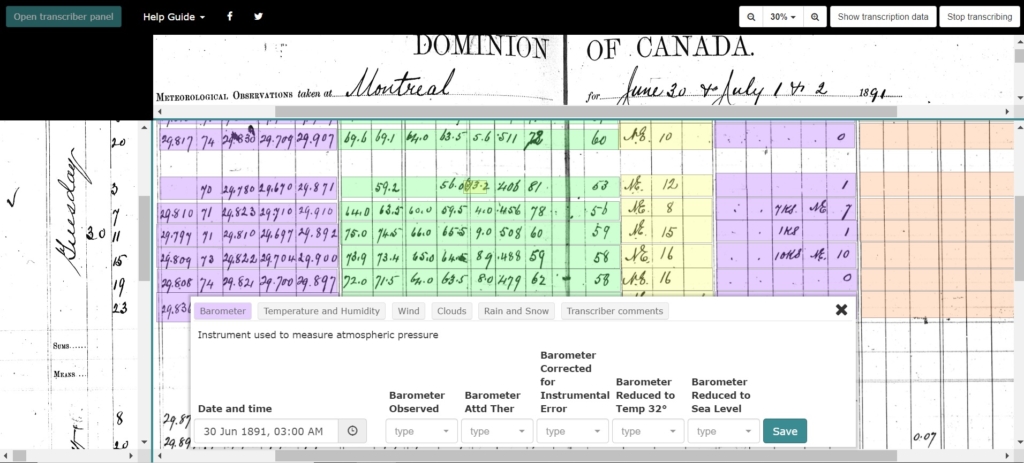 Open transcriber panel Help Guide 30% Show transcription data Stop transcribing
DOMINION OF CANADA.
METEOROLOGICAL OBSERVATIONS taken at Montreal for June 30 & July 1 & 2 1891
20 29.817 74 29.830 29.709 29.907 69.6 69.1 64.0 63.5 5.6 .511 72 60 N.E. 10 0
Tuesday
3 70 29.780 29.670 29.871 59.2 56.0 13.2 .406 81 53 N.E. 12 1
7 29.810 71 29.823 29.710 29.910 64.0 63.5 60.0 59.5 4.0 .456 78 56 N.E. 8 7KS N.E. 7
30 11 29.797 71 29.810 29.697 29.892 75.0 74.5 66.0 65.5 9.0 .508 60 59 N.E. 15 1KS 1
15 29.809 73 29.822 29.704 29.900 73.9 73.4 65.0 64.5 8.9 .488 59 58 N.E. 16 10KS N.E. 10
19 29.808 74 29.821 29.700 29.897 72.0 71.5 64.0 63.5 8.0 .479 62 58 N.E. 16 0
23 29.836
Barometer Temperature and Humidity Wind Clouds Rain and Snow Transcriber comments
Instrument used to measure atmospheric pressure
SUMS......
MEANS ...
Date and time
Barometer Observed
Barometer Attd Ther
Barometer Corrected for Instrumental Error
Barometer Reduced to Temp 32°
Barometer Reduced to Sea Level
30 Jun 1891, 03:00 AM type type type type type Save
8 29.87
20 29.89 0.07